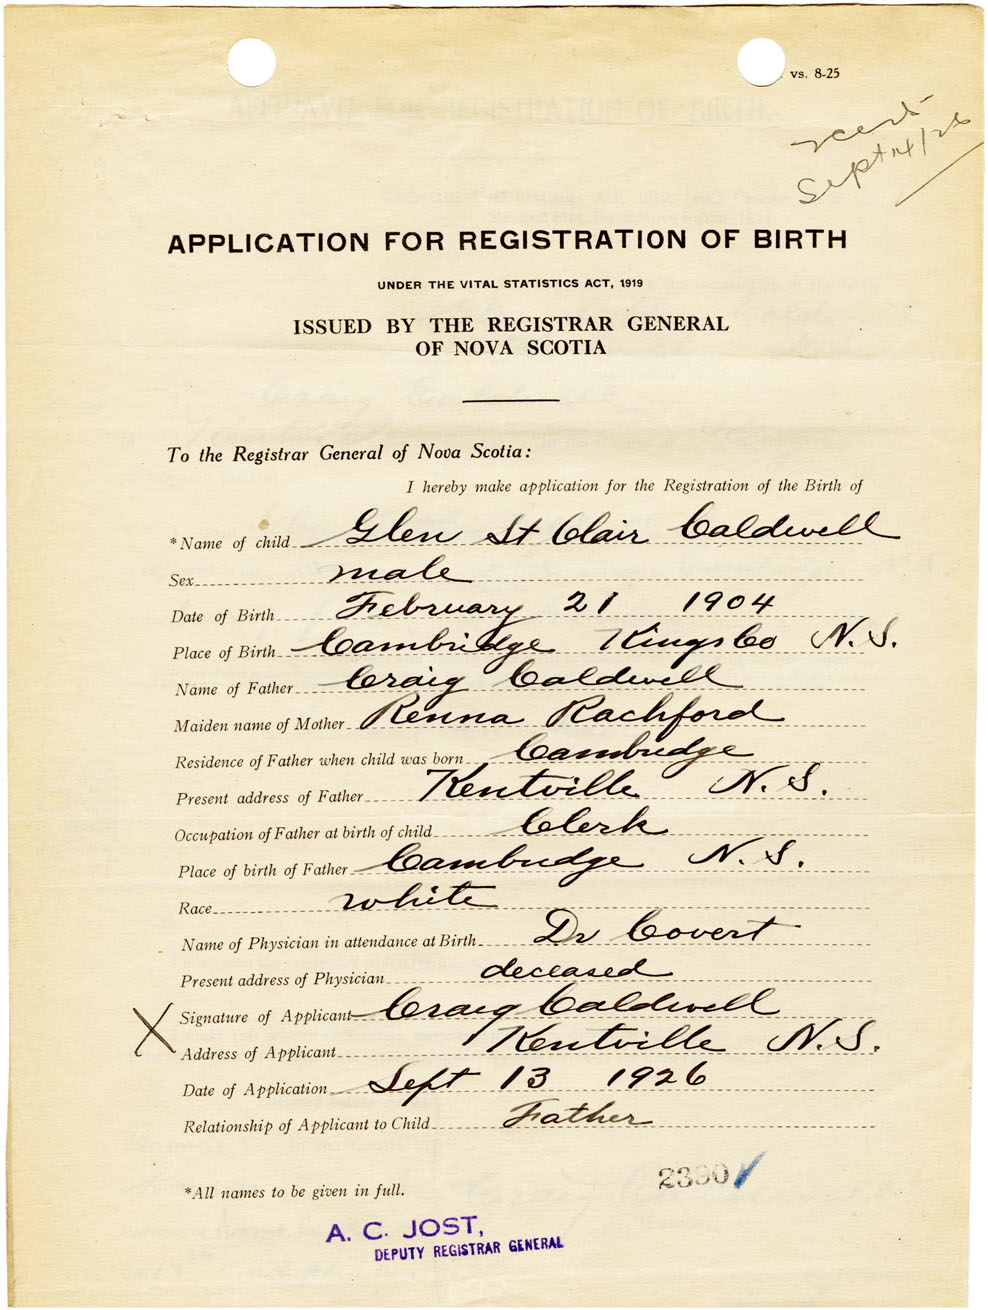 vs. 8-25
Sept 14/26
APPLICATION FOR REGISTRATION OF BIRTH
UNDER THE VITAL STATISTICS ACT, 1919
ISSUED BY THE REGISTRAR GENERAL
OF NOVA SCOTIA
To the Registrar General of Nova Scotia:
I hereby make application for the Registration of the Birth of
*Name of child Glen St Clair Caldwell
Sex male
Date of Birth February 21 1904
Place of Birth Cambridge Kings Co N.S.
Name of Father Craig Caldwell
Maiden name of Mother Renna Rachford
Residence of Father when child was born Cambridge
Present address of Father Kentville N.S.
Occupation of Father at birth of child Clerk
Place of birth of Father Cambridge N.S.
Race white
Name of Physician in attendance at Birth Dr Covert
Present address of Physician deceased
X Signature of Applicant Craig Caldwell
Address of Applicant Kentville N.S.
Date of Application Sept 13 1926
Relationship of Applicant to Child Father
*All names to be given in full.
A. C. JOST,
DEPUTY REGISTRAR GENERAL